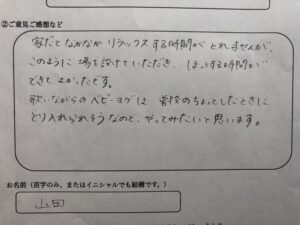 ②ご意見ご感想など
家だとなかなか リラックスする時間が とれませんが、
このように 場を設けていただき、ほっとする時間が
できてよかったです。
歌いながらのベビーヨガは 普段のちょっとしたときに
とり入れられそうなので、やってみたいと思います。
お名前（苗字のみ、またはイニシャルでも結構です。）
山田